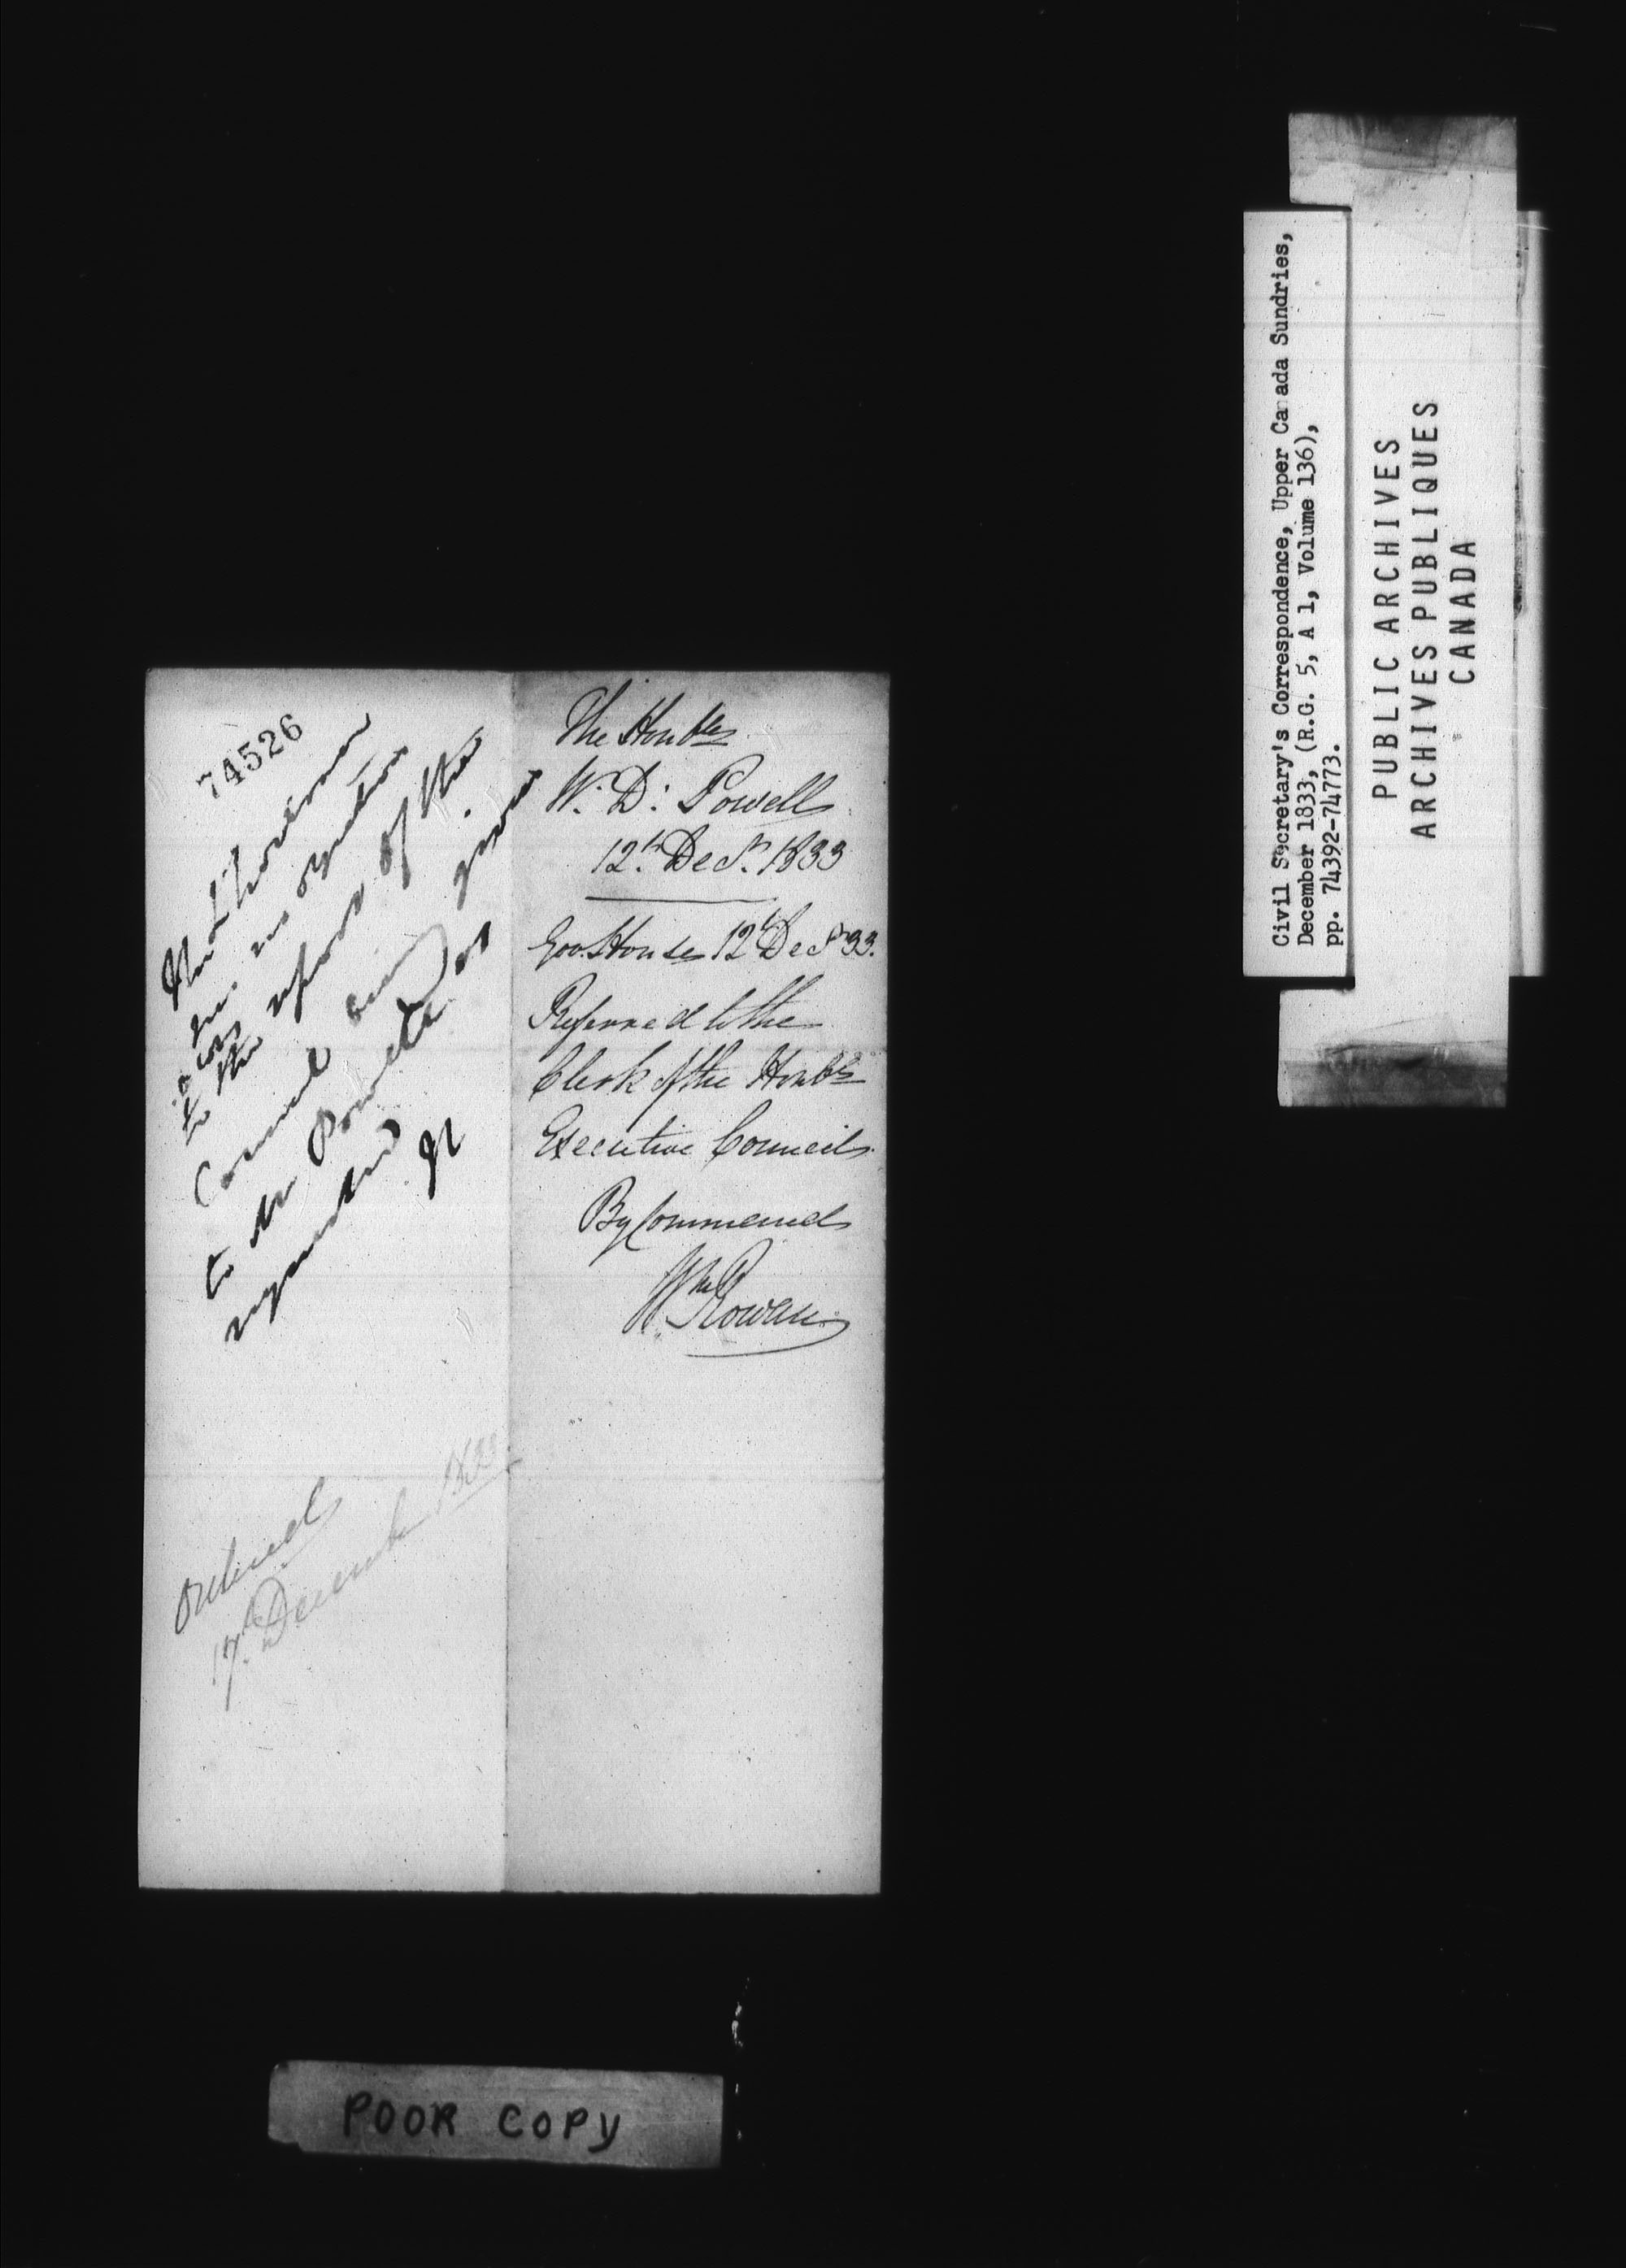 74526
His Excellency
sees no objection
to the report of the
Council being
to Mr Powell as
requested
Ordered
17th December 1833
The Honble
W. D. Powell
12th Decr. 1833
Gov. House 12th Decr 33.
Referred to the
Clerk of the Honble
Executive Council
By Command
Wm Rowan
Civil Secretary's Correspondence, Upper Canada Sundries,
December 1833, (R.G. 5, A 1, Volume 136),
pp. 74392-74773.
PUBLIC ARCHIVES
ARCHIVES PUBLIQUES
CANADA
POOR COPY